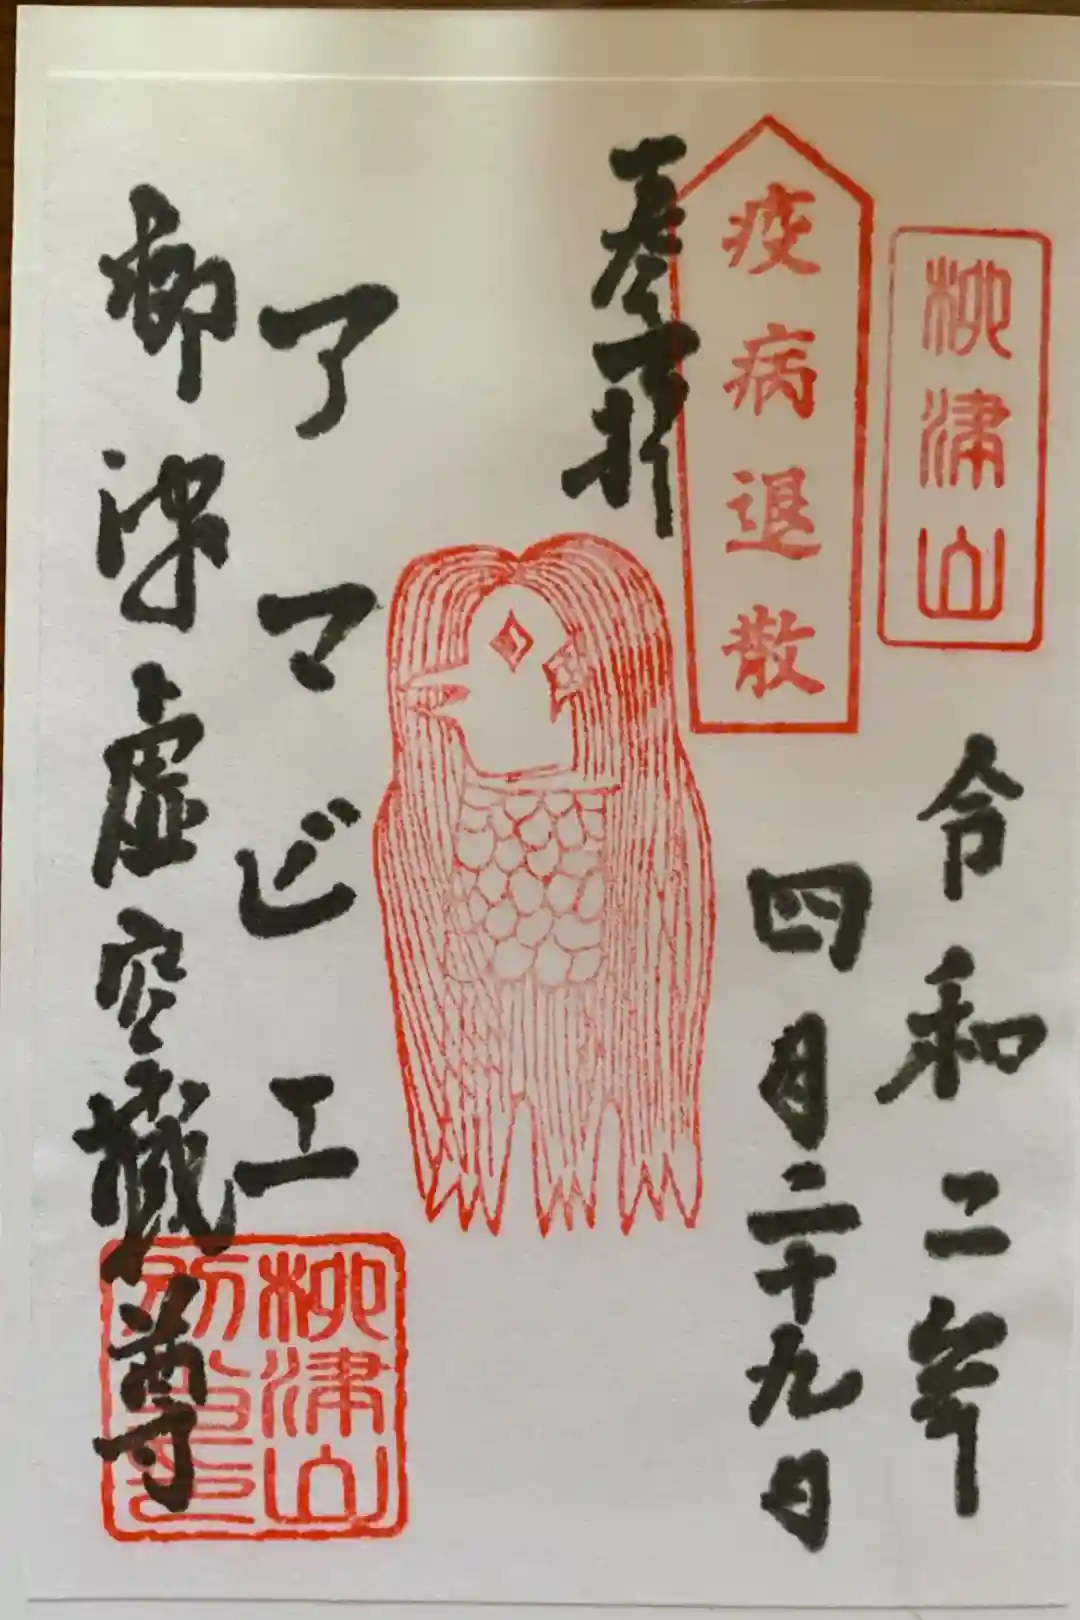 柳津山
疫病退散
奉拝
令和二年
四月二十九日
アマビエ
柳津虚空蔵尊
柳津山